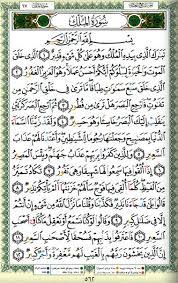 سُورَةُ المُلْكِ
بِسْمِ اللَّهِ الرَّحْمَٰنِ الرَّحِيمِ
تَبَٰرَكَ ٱلَّذِى بِيَدِهِ ٱلْمُلْكُ وَهُوَ عَلَىٰ كُلِّ شَىْءٍ قَدِيرٌ ١ ٱلَّذِى خَلَقَ
ٱلْمَوْتَ وَٱلْحَيَوٰةَ لِيَبْلُوَكُمْ أَيُّكُمْ أَحْسَنُ عَمَلًا وَهُوَ ٱلْعَزِيزُ ٱلْغَفُورُ ٢
ٱلَّذِى خَلَقَ سَبْعَ سَمَٰوَٰتٍ طِبَاقًا مَّا تَرَىٰ فِى خَلْقِ ٱلرَّحْمَٰنِ مِن
تَفَٰوُتٍ فَٱرْجِعِ ٱلْبَصَرَ هَلْ تَرَىٰ مِن فُطُورٍ ٣ ثُمَّ ٱرْجِعِ ٱلْبَصَرَ
كَرَّتَيْنِ يَنقَلِبْ إِلَيْكَ ٱلْبَصَرُ خَاسِئًا وَهُوَ حَسِيرٌ ٤ وَلَقَدْ زَيَّنَّا ٱلسَّمَآءَ
ٱلدُّنْيَا بِمَصَٰبِيحَ وَجَعَلْنَٰهَا رُجُومًا لِّلشَّيَٰطِينِ وَأَعْتَدْنَا لَهُمْ عَذَابَ
ٱلسَّعِيرِ ٥ وَلِلَّذِينَ كَفَرُوا۟ بِرَبِّهِمْ عَذَابُ جَهَنَّمَ وَبِئْسَ ٱلْمَصِيرُ ٦
إِذَآ أُلْقُوا۟ فِيهَا سَمِعُوا۟ لَهَا شَهِيقًا وَهِىَ تَفُورُ ٧ تَكَادُ تَمَيَّزُ مِنَ ٱلْغَيْظِ
كُلَّمَآ أُلْقِىَ فِيهَا فَوْجٌ سَأَلَهُمْ خَزَنَتُهَآ أَلَمْ يَأْتِكُمْ نَذِيرٌ ٨ قَالُوا۟ بَلَىٰ
قَدْ جَآءَنَا نَذِيرٌ فَكَذَّبْنَا وَقُلْنَا مَا نَزَّلَ ٱللَّهُ مِن شَىْءٍ إِنْ أَنتُمْ إِلَّا
فِى ضَلَٰلٍ كَبِيرٍ ٩ وَقَالُوا۟ لَوْ كُنَّا نَسْمَعُ أَوْ نَعْقِلُ مَا كُنَّا فِىٓ أَصْحَٰبِ
ٱلسَّعِيرِ ١٠ فَٱعْتَرَفُوا۟ بِذَنۢبِهِمْ فَسُحْقًا لِّأَصْحَٰبِ ٱلسَّعِيرِ ١١
إِنَّ ٱلَّذِينَ يَخْشَوْنَ رَبَّهُم بِٱلْغَيْبِ لَهُم مَّغْفِرَةٌ وَأَجْرٌ كَبِيرٌ ١٢
٥٦٢